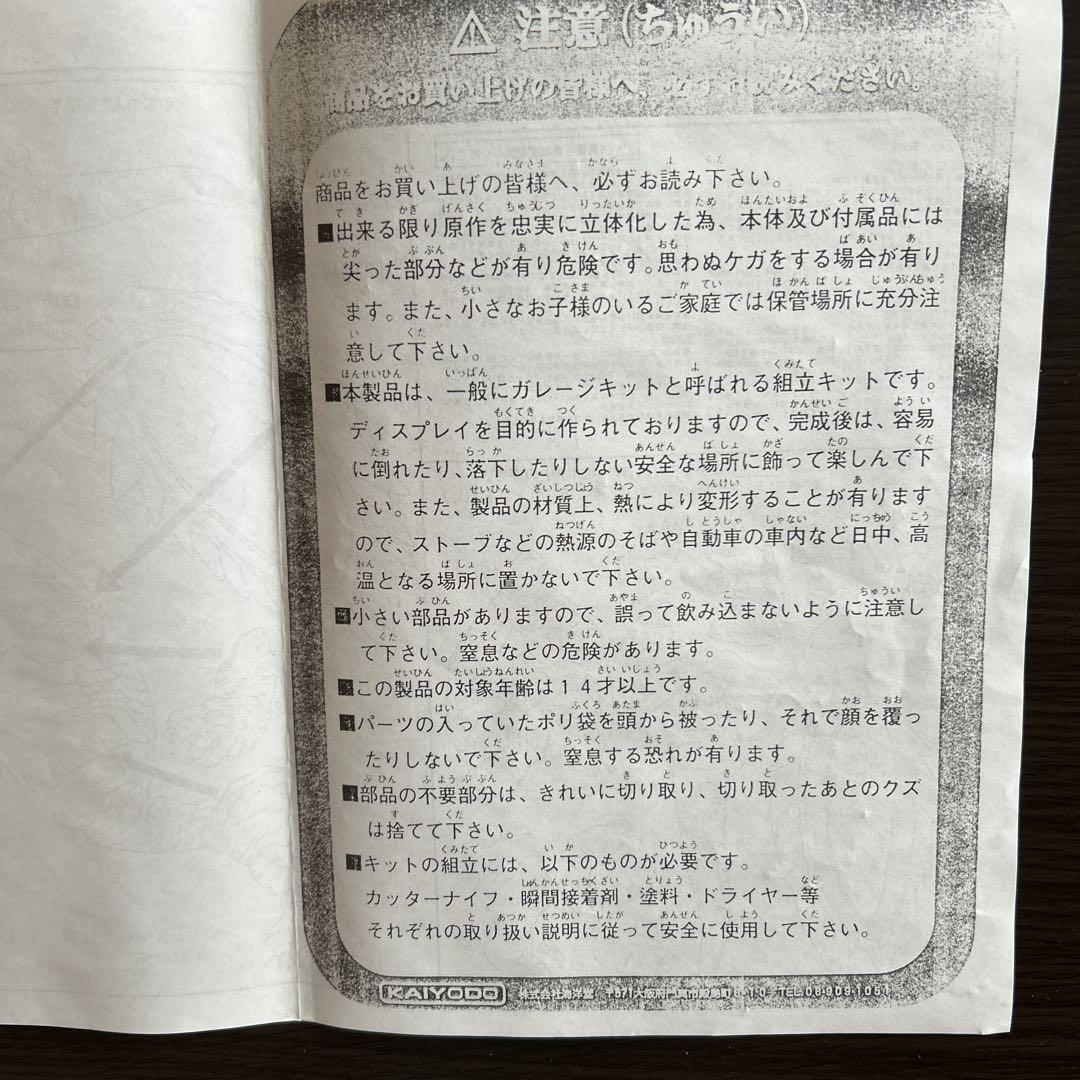 ⚠ 注意(ちゅうい)
商品をお買い上げの皆様へ、必ずお読みください。
商品をお買い上げの皆様へ、必ずお読み下さい。
■出来る限り原作を忠実に立体化した為、本体及び付属品には
尖った部分などが有り危険です。思わぬケガをする場合が有り
ます。また、小さなお子様のいるご家庭では保管場所に充分注
意して下さい。
■本製品は、一般にガレージキットと呼ばれる組立キットです。
ディスプレイを目的に作られておりますので、完成後は、容易
に倒れたり、落下したりしない安全な場所に飾って楽しんで下
さい。また、製品の材質上、熱により変形することが有ります
ので、ストーブなどの熱源のそばや自動車の車内など日中、高
温となる場所に置かないで下さい。
■小さい部品がありますので、誤って飲み込まないように注意し
て下さい。窒息などの危険があります。
■この製品の対象年齢は14才以上です。
■パーツの入っていたポリ袋を頭から被ったり、それで顔を覆っ
たりしないで下さい。窒息する恐れが有ります。
■部品の不要部分は、きれいに切り取り、切り取ったあとのクズ
は捨てて下さい。
■キットの組立には、以下のものが必要です。
カッターナイフ・瞬間接着剤・塗料・ドライヤー等
それぞれの取り扱い説明に従って安全に使用して下さい。
KAIYODO 株式会社海洋堂 〒571大阪府門真市